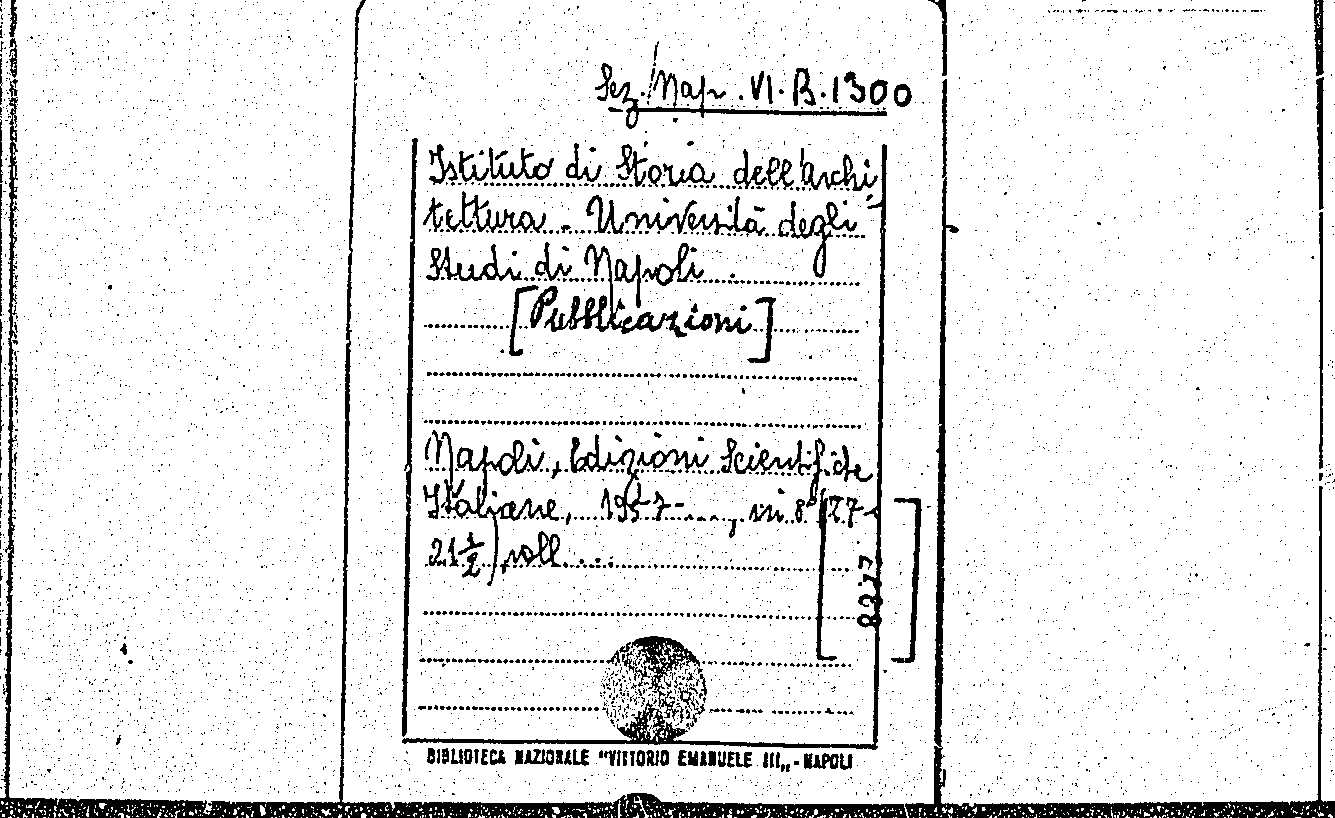 Sez. Nap. VI. B. 1300
Istituto di Storia dell'Archi
tettura. Università degli
Studi di Napoli.
[Pubblicazioni]
Napoli, Edizioni Scientifiche
Italiane, 1957-..., in 8° (27-
21½) voll. ...
[8277]
BIBLIOTECA NAZIONALE "VITTORIO EMANUELE III„ - NAPOLI